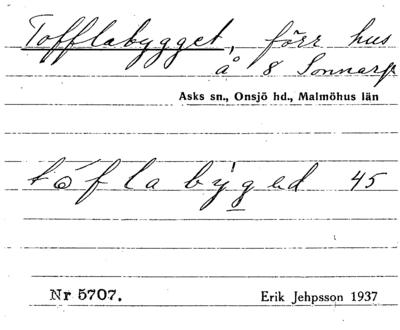 Tofflabygget, förr hus
å 8 Sonnarp
Asks sn., Onsjö hd., Malmöhus län
tófla býged 45
Nr 5707.
Erik Jehpsson 1937